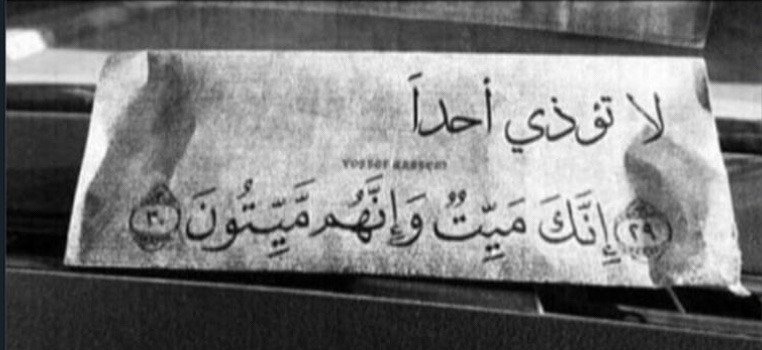 لا تؤذي أحداً
YOUSSEF KASSEM
٢٩ إِنَّكَ مَيِّتٌ وَإِنَّهُم مَّيِّتُونَ ٣٠